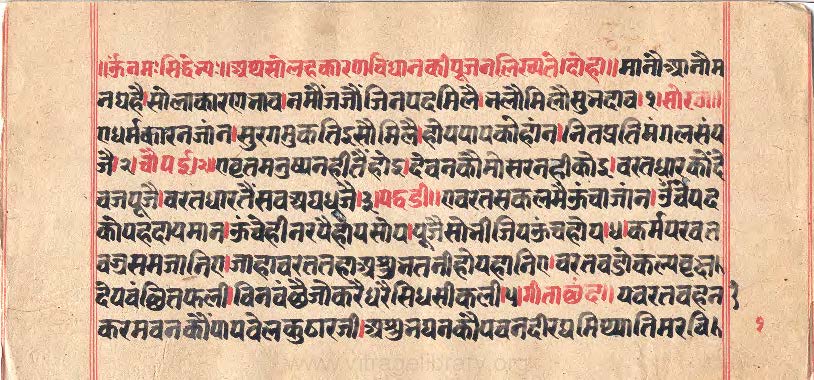 ॥ऊँनमःसिद्धेभ्यः॥अथसोलहकारणविधानकीपूजनलिख्यते।दोहा॥मानौंआनौम
नधहै।सोलाकारणनाव।नमौंजजौंजिनपदमिलै।नलौमिलौसुनदाव।१।सोरठा॥
एधर्मकारनजांन।सुरगमुकतिऽसौमिलै।होयपापकीहांन।नितप्रतिमंगलसंप
जै।२।चौपई।२।एवृतमनुष्यनहीतैंहोऽ।देवनकौमोसरनहीकोऽ।वरतधारकोंदे
वजपूजै।वरतधारतैंसवअघधूजै।३।पद्धडी॥एवरतसकलमैऊंचाजांन।ऊँचेपद
कोपहदायमान।ऊंचेहीनरपैहोयसोय।पूजैसोनीजियऊंचहोय।४।कर्मपरवत
वज्रसमजानिए।जोहावरततहाअशुनतनीहोयहानिए।वरतवडोकल्पवृक्ष
देयवंछितफली।विनवंछैजोकरैधरैसिधसीकली।५।गीताछंद॥यवरतवहन
करमवनकौंपापवेलकुठारजी।अशुनघनकौपवनदीरघमिथ्यातिमरवि
१
www.vitragelibrary.org